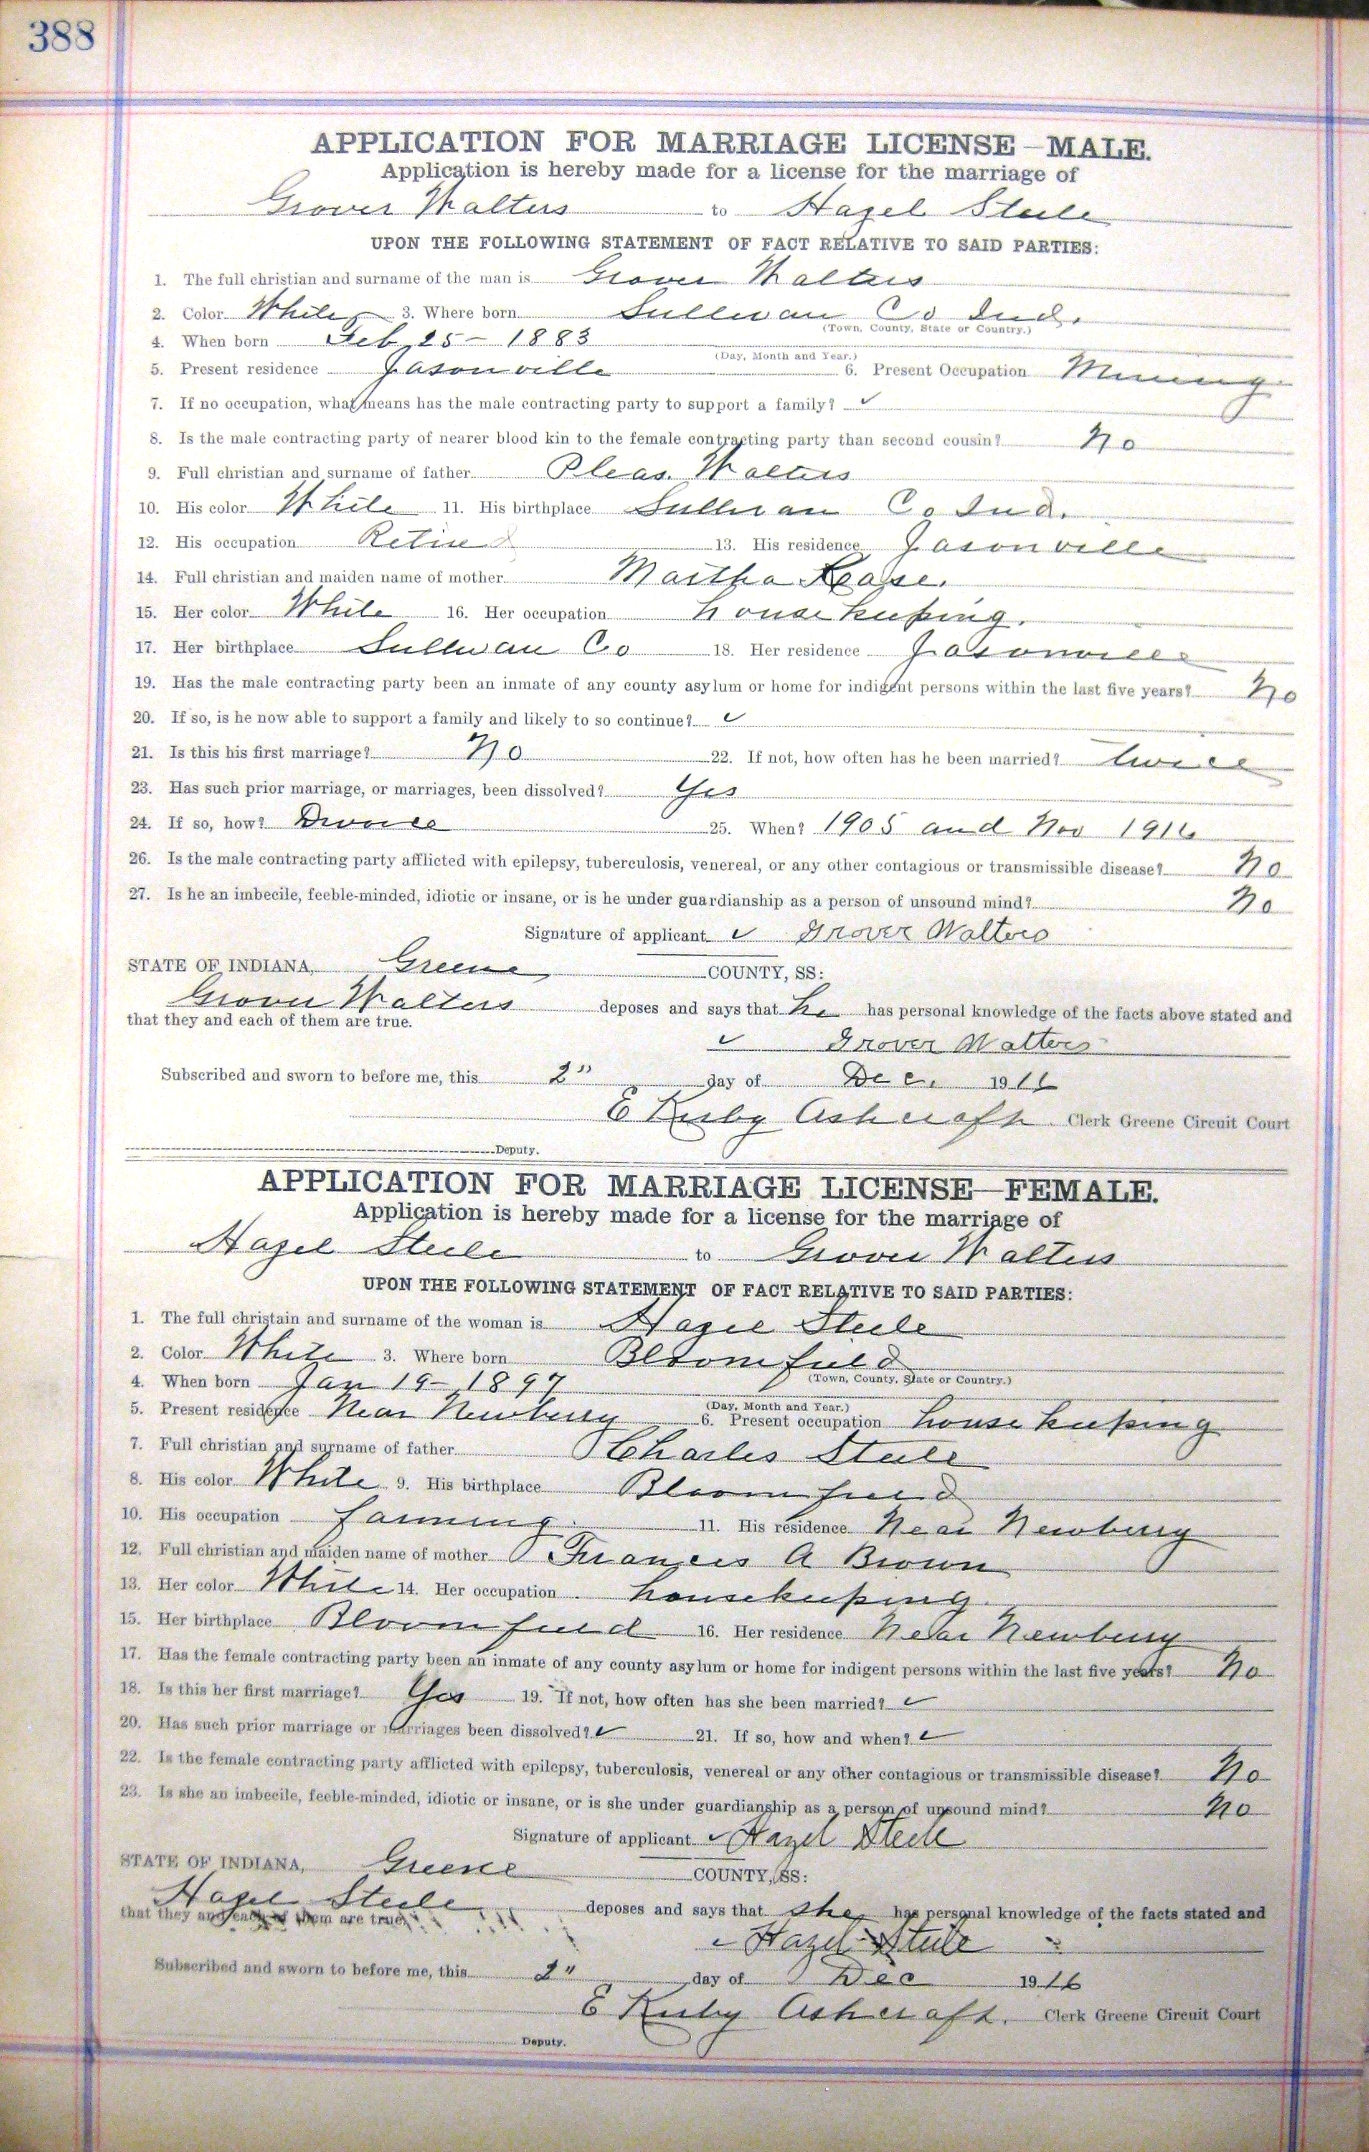 388
APPLICATION FOR MARRIAGE LICENSE—MALE.
Application is hereby made for a license for the marriage of
Grover Walters to Hazel Steele
UPON THE FOLLOWING STATEMENT OF FACT RELATIVE TO SAID PARTIES:
1. The full christian and surname of the man is Grover Walters
2. Color White 3. Where born Sullivan Co Ind.
(Town, County, State or Country.)
4. When born Feb 25 - 1883
(Day, Month and Year.)
5. Present residence Jasonville 6. Present Occupation Mining
7. If no occupation, what means has the male contracting party to support a family? ✓
8. Is the male contracting party of nearer blood kin to the female contracting party than second cousin? No
9. Full christian and surname of father Pleas. Walters
10. His color White 11. His birthplace Sullivan Co Ind.
12. His occupation Retired 13. His residence Jasonville
14. Full christian and maiden name of mother Martha Kease.
15. Her color White 16. Her occupation housekeeping.
17. Her birthplace Sullivan Co 18. Her residence Jasonville
19. Has the male contracting party been an inmate of any county asylum or home for indigent persons within the last five years? No
20. If so, is he now able to support a family and likely to so continue? ✓
21. Is this his first marriage? No 22. If not, how often has he been married? twice
23. Has such prior marriage, or marriages, been dissolved? Yes
24. If so, how? Divorce 25. When? 1905 and Nov 1916
26. Is the male contracting party afflicted with epilepsy, tuberculosis, venereal, or any other contagious or transmissible disease? No
27. Is he an imbecile, feeble-minded, idiotic or insane, or is he under guardianship as a person of unsound mind? No
Signature of applicant ✓ Grover Walters
STATE OF INDIANA, Greene COUNTY, SS:
Grover Walters deposes and says that he has personal knowledge of the facts above stated and
that they and each of them are true.
✓ Grover Walters
Subscribed and sworn to before me, this 2" day of Dec. 1916
E Kirby Ashcraft Clerk Greene Circuit Court
Deputy.
APPLICATION FOR MARRIAGE LICENSE—FEMALE.
Application is hereby made for a license for the marriage of
Hazel Steele to Grover Walters
UPON THE FOLLOWING STATEMENT OF FACT RELATIVE TO SAID PARTIES:
1. The full christain and surname of the woman is Hazel Steele
2. Color White 3. Where born Bloomfield
(Town, County, State or Country.)
4. When born Jan 19 - 1897
(Day, Month and Year.)
5. Present residence Near Newberry 6. Present occupation housekeeping
7. Full christian and surname of father Charles Steele
8. His color White 9. His birthplace Bloomfield
10. His occupation farming. 11. His residence Near Newberry
12. Full christian and maiden name of mother Frances A Brown
13. Her color White 14. Her occupation housekeeping.
15. Her birthplace Bloomfield 16. Her residence Near Newberry
17. Has the female contracting party been an inmate of any county asylum or home for indigent persons within the last five years? No
18. Is this her first marriage? Yes 19. If not, how often has she been married? ✓
20. Has such prior marriage or marriages been dissolved? ✓ 21. If so, how and when? ✓
22. Is the female contracting party afflicted with epilepsy, tuberculosis, venereal or any other contagious or transmissible disease? No
23. Is she an imbecile, feeble-minded, idiotic or insane, or is she under guardianship as a person of unsound mind? No
Signature of applicant ✓ Hazel Steele
STATE OF INDIANA, Greene COUNTY, SS:
Hazel Steele deposes and says that she has personal knowledge of the facts stated and
that they and each of them are true.
✓ Hazel Steele
Subscribed and sworn to before me, this 2" day of Dec 1916
E Kirby Ashcraft. Clerk Greene Circuit Court
Deputy.